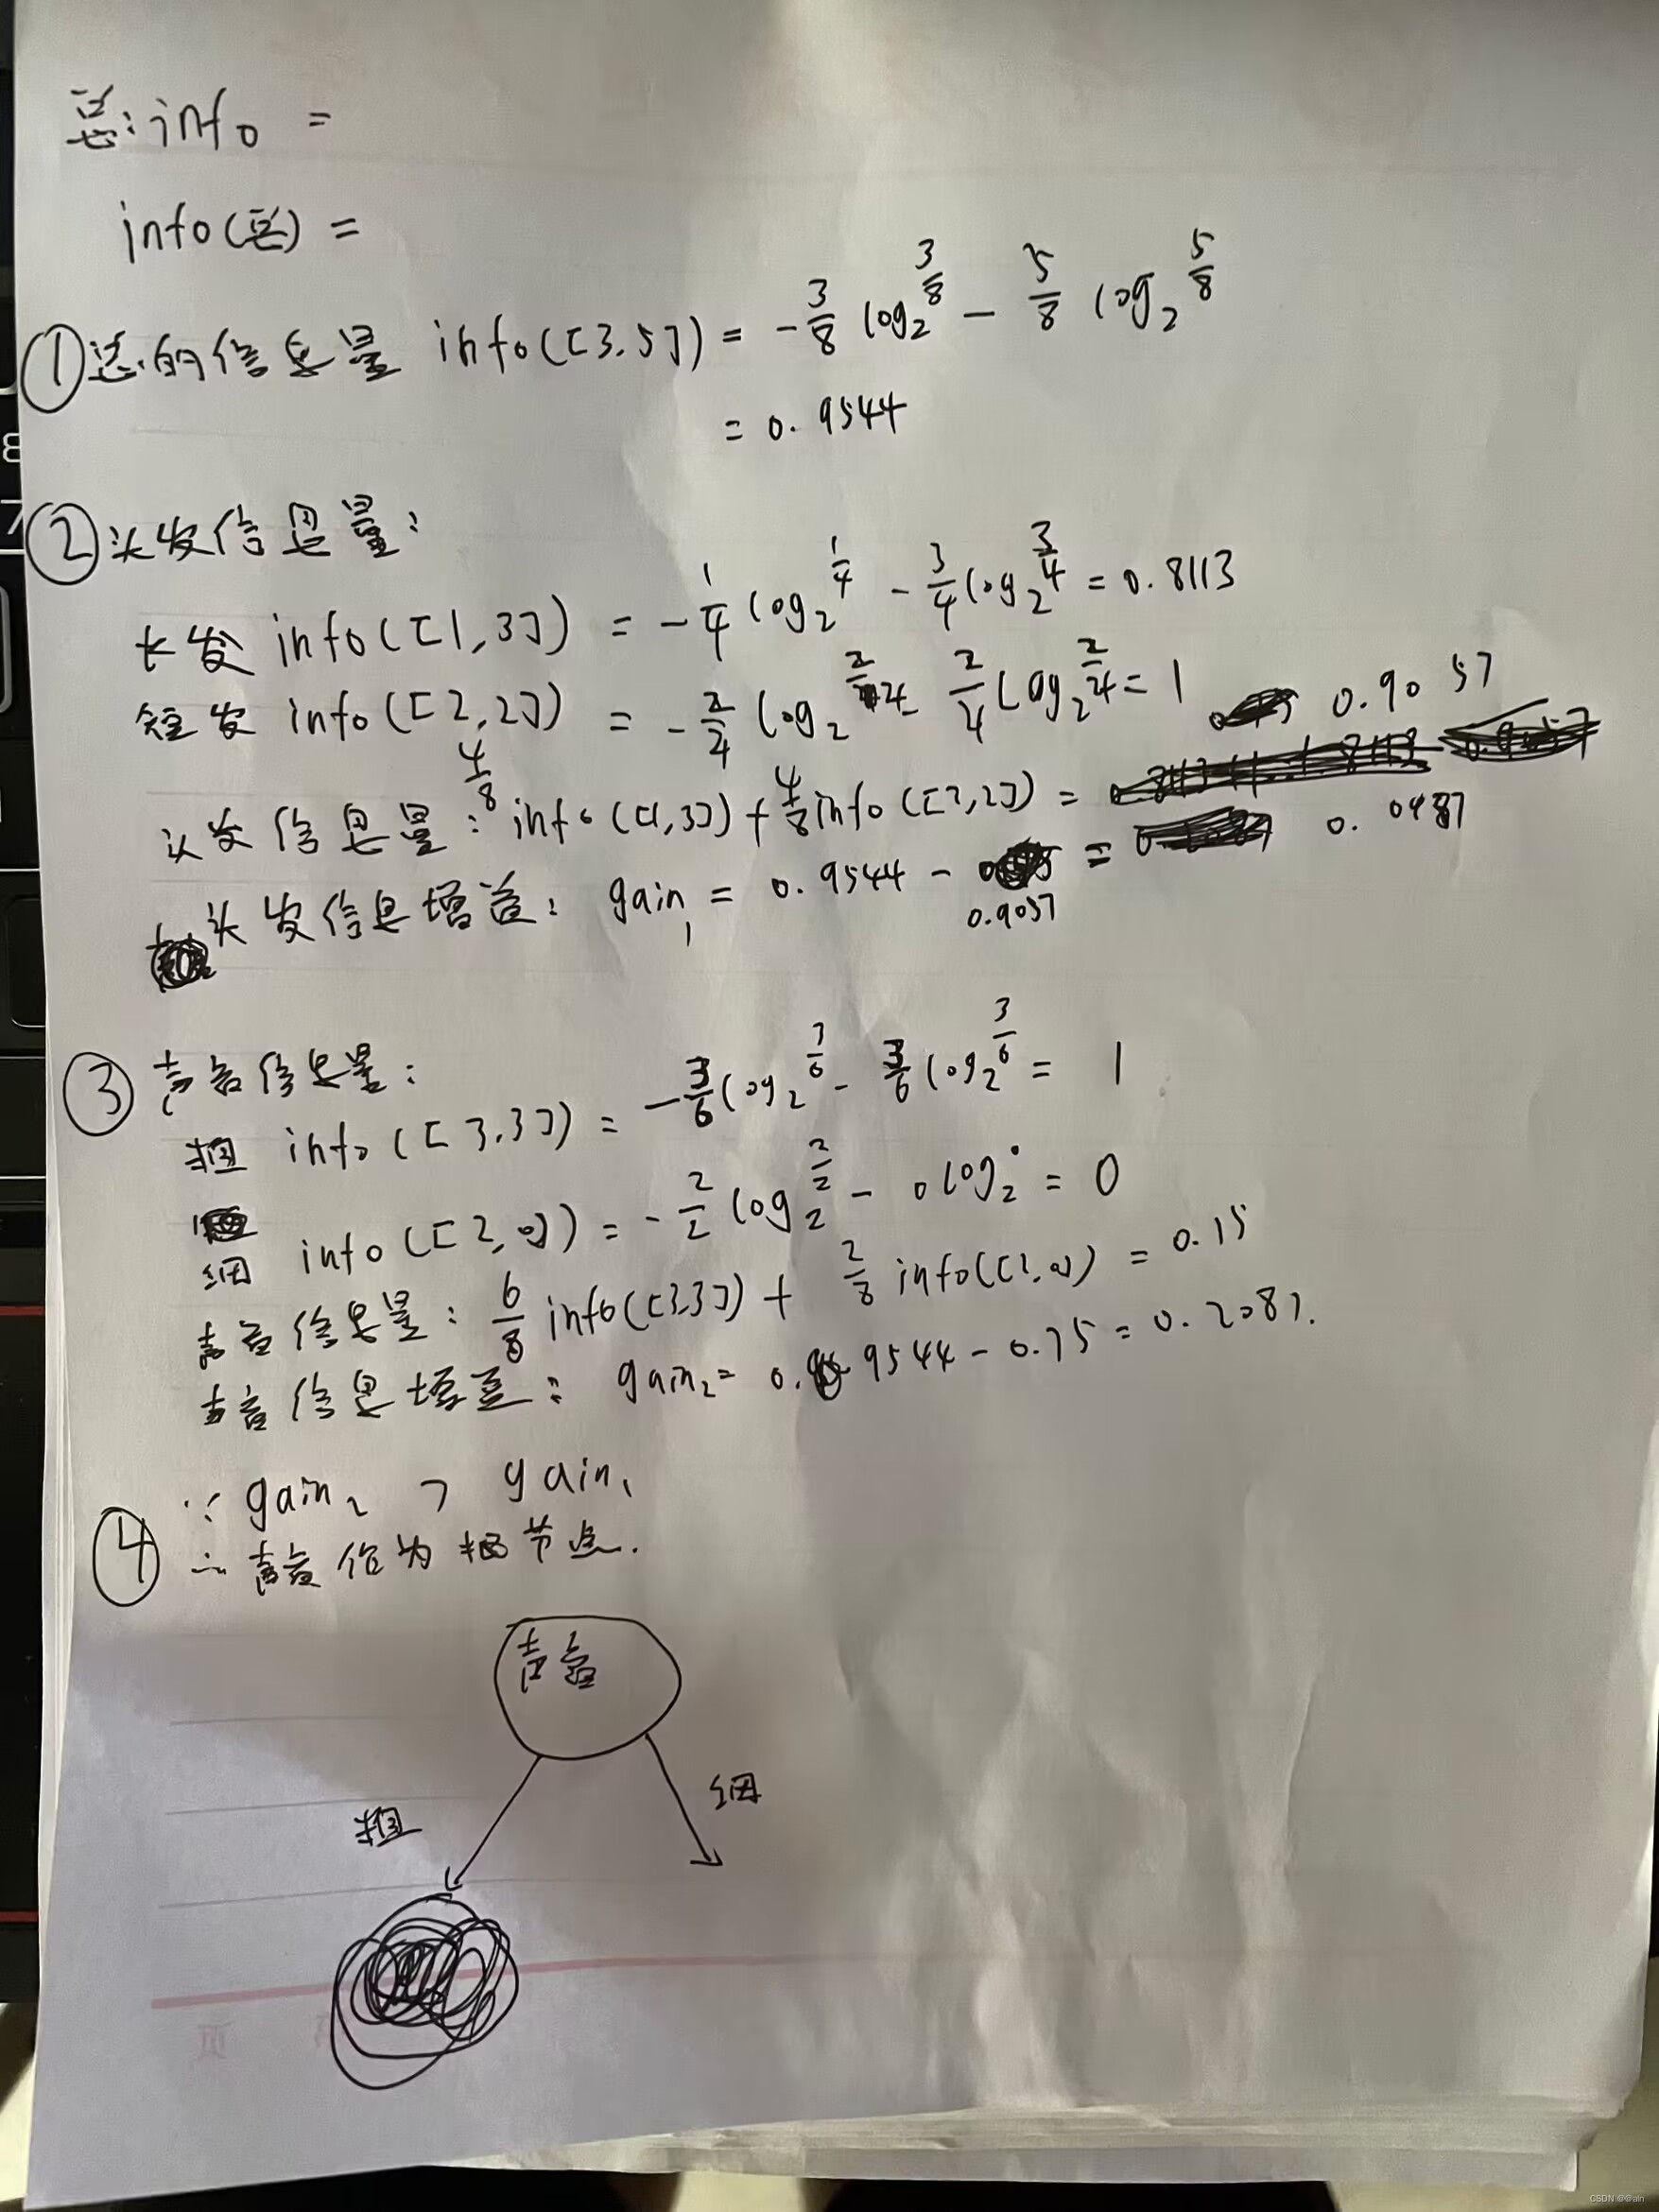 总:info =
info(总) =
①总的信息量 info([3,5]) = -3/8 log₂^3/8 - 5/8 log₂^5/8
= 0.9544
②头发信息量:
长发 info([1,3]) = -1/4 log₂^1/4 - 3/4 log₂^3/4 = 0.8113
短发 info([2,2]) = -2/4 log₂^2/4 - 2/4 log₂^2/4 = 1
头发信息量: 4/8 info([1,3]) + 4/8 info([2,2]) = 0.9057
头发信息增益: gain₁ = 0.9544 - 0.9057 = 0.0487
③声音信息量:
粗 info([3,3]) = -3/6 log₂^3/6 - 3/6 log₂^3/6 = 1
细 info([2,0]) = -2/2 log₂^2/2 - 0log₂^0 = 0
声音信息量: 6/8 info([3,3]) + 2/8 info([2,0]) = 0.75
声音信息增益: gain₂ = 0.9544 - 0.75 = 0.2087.
④∵ gain₂ > gain₁
∴ 声音作为根节点.
声音
粗
细
8
7
页
CSDN @@ain